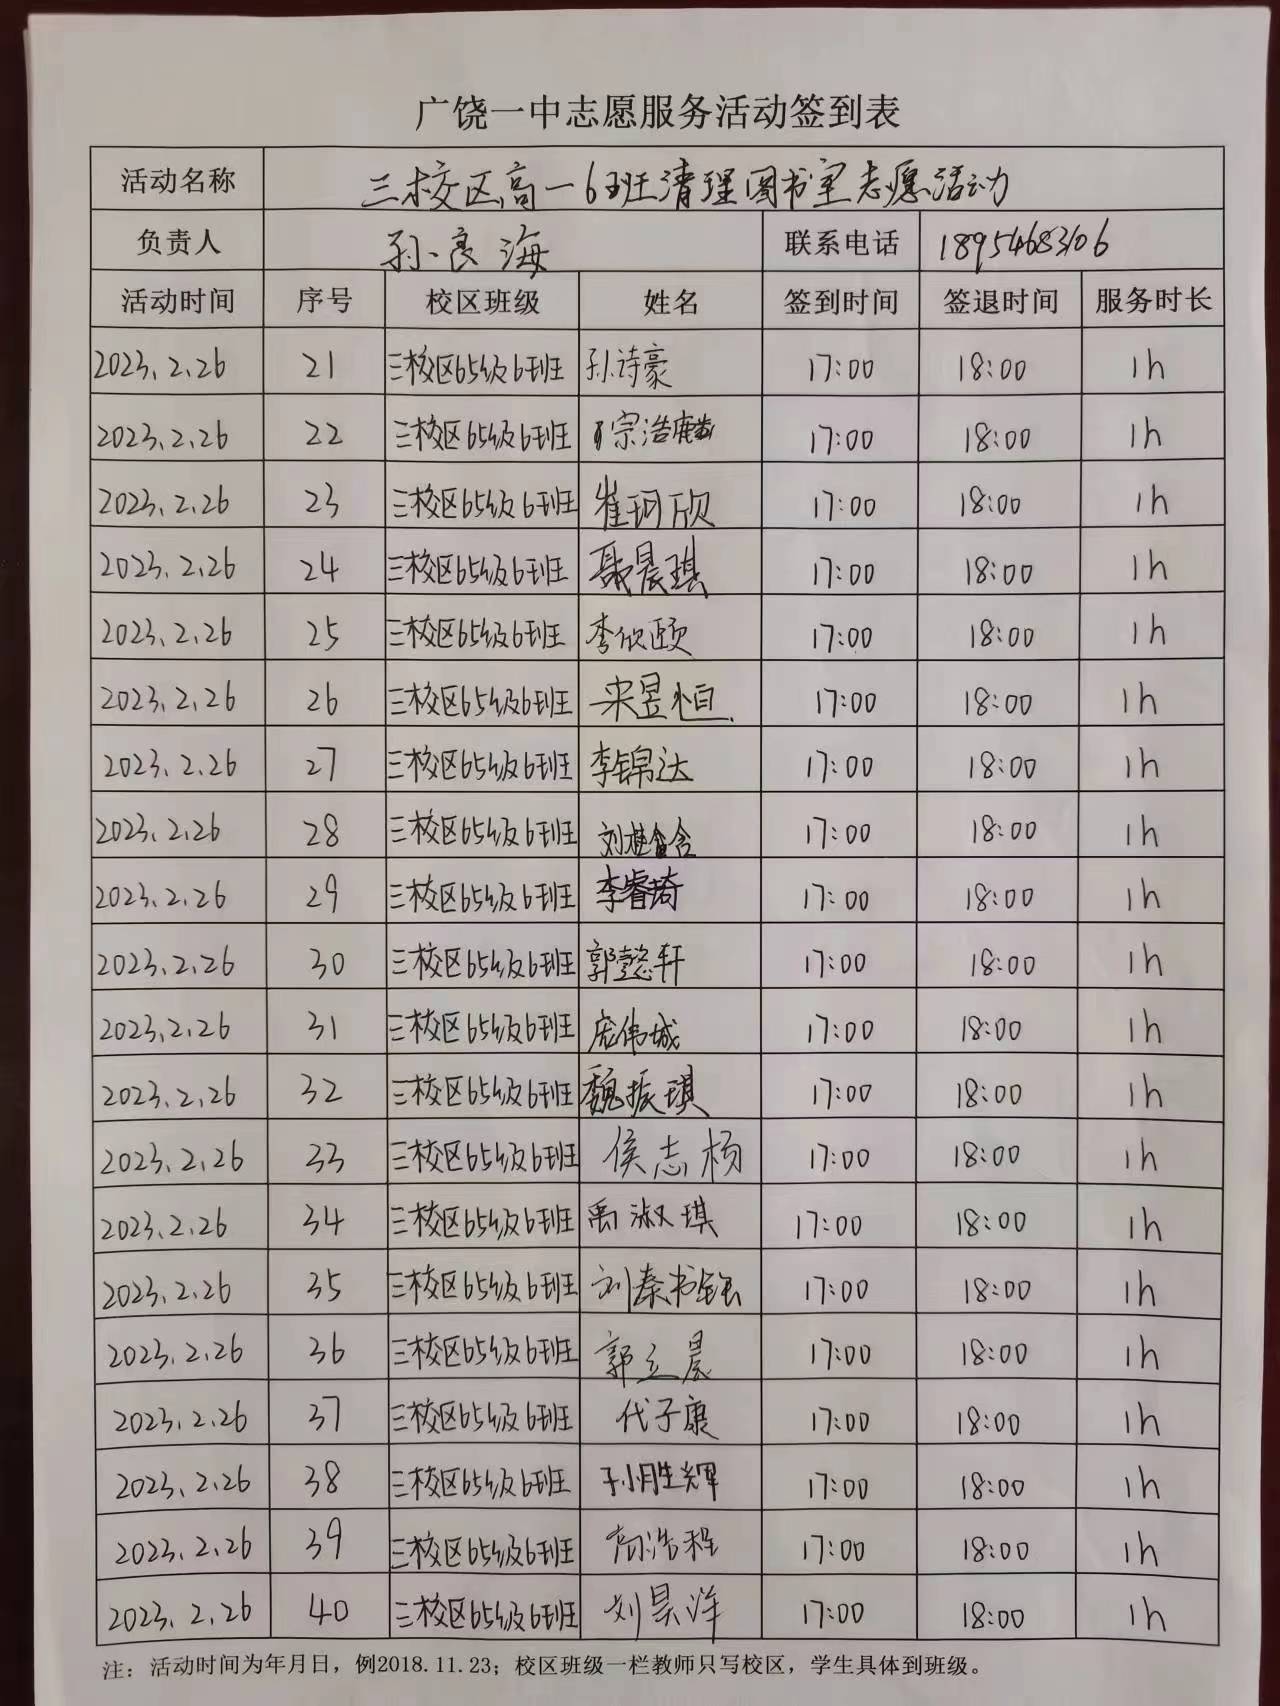 广饶一中志愿服务活动签到表
活动名称 三校区高一6班清理图书室志愿活动
负责人 孙良海 联系电话 18954683106
活动时间 序号 校区班级 姓名 签到时间 签退时间 服务时长
2023.2.26 21 三校区65级6班 孙诗豪 17:00 18:00 1h
2023.2.26 22 三校区65级6班 宗浩 17:00 18:00 1h
2023.2.26 23 三校区65级6班 崔珂欣 17:00 18:00 1h
2023.2.26 24 三校区65级6班 聂晨琪 17:00 18:00 1h
2023.2.26 25 三校区65级6班 李欣颐 17:00 18:00 1h
2023.2.26 26 三校区65级6班 宋昱恒 17:00 18:00 1h
2023.2.26 27 三校区65级6班 李锦达 17:00 18:00 1h
2023.2.26 28 三校区65级6班 刘 17:00 18:00 1h
2023.2.26 29 三校区65级6班 李睿琦 17:00 18:00 1h
2023.2.26 30 三校区65级6班 郭懿轩 17:00 18:00 1h
2023.2.26 31 三校区65级6班 庞伟城 17:00 18:00 1h
2023.2.26 32 三校区65级6班 魏振琪 17:00 18:00 1h
2023.2.26 33 三校区65级6班 侯志杨 17:00 18:00 1h
2023.2.26 34 三校区65级6班 禹淑琪 17:00 18:00 1h
2023.2.26 35 三校区65级6班 刘秦书 17:00 18:00 1h
2023.2.26 36 三校区65级6班 郭立晨 17:00 18:00 1h
2023.2.26 37 三校区65级6班 代子康 17:00 18:00 1h
2023.2.26 38 三校区65级6班 孙胜辉 17:00 18:00 1h
2023.2.26 39 三校区65级6班 高浩程 17:00 18:00 1h
2023.2.26 40 三校区65级6班 刘昊洋 17:00 18:00 1h
注：活动时间为年月日，例2018.11.23；校区班级一栏教师只写校区，学生具体到班级。